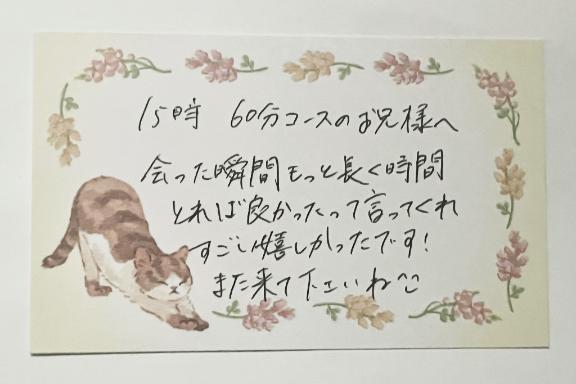 15時 60分コースのお兄様へ
会った瞬間もっと長く時間
とれば良かったって言ってくれ
すごく嬉しかったです!
また来て下さいね^^